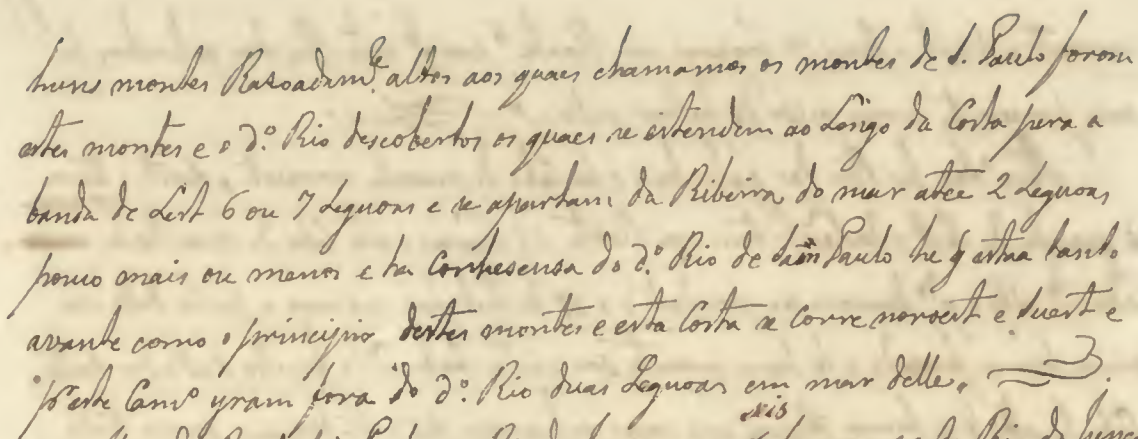 huns montes Razoadamte. altos aos quaes chamamos os montes de S. Paulo forom
estes montes e o d.o Rio descobertos os quaes se estendem ao Longo da Costa pera a
banda de Lest 6 ou 7 Leguoas e se apartam da Ribeira do mar atee 2 Leguoas
pouco mais ou menos e ha Conhesensa do d.o Rio de Sam Paulo he q estaa tanto
avante como o principio destes montes e esta Costa se Corre noroest e suest e
por este Camo yram fora do d.o Rio duas Leguoas em mar delle.
seis